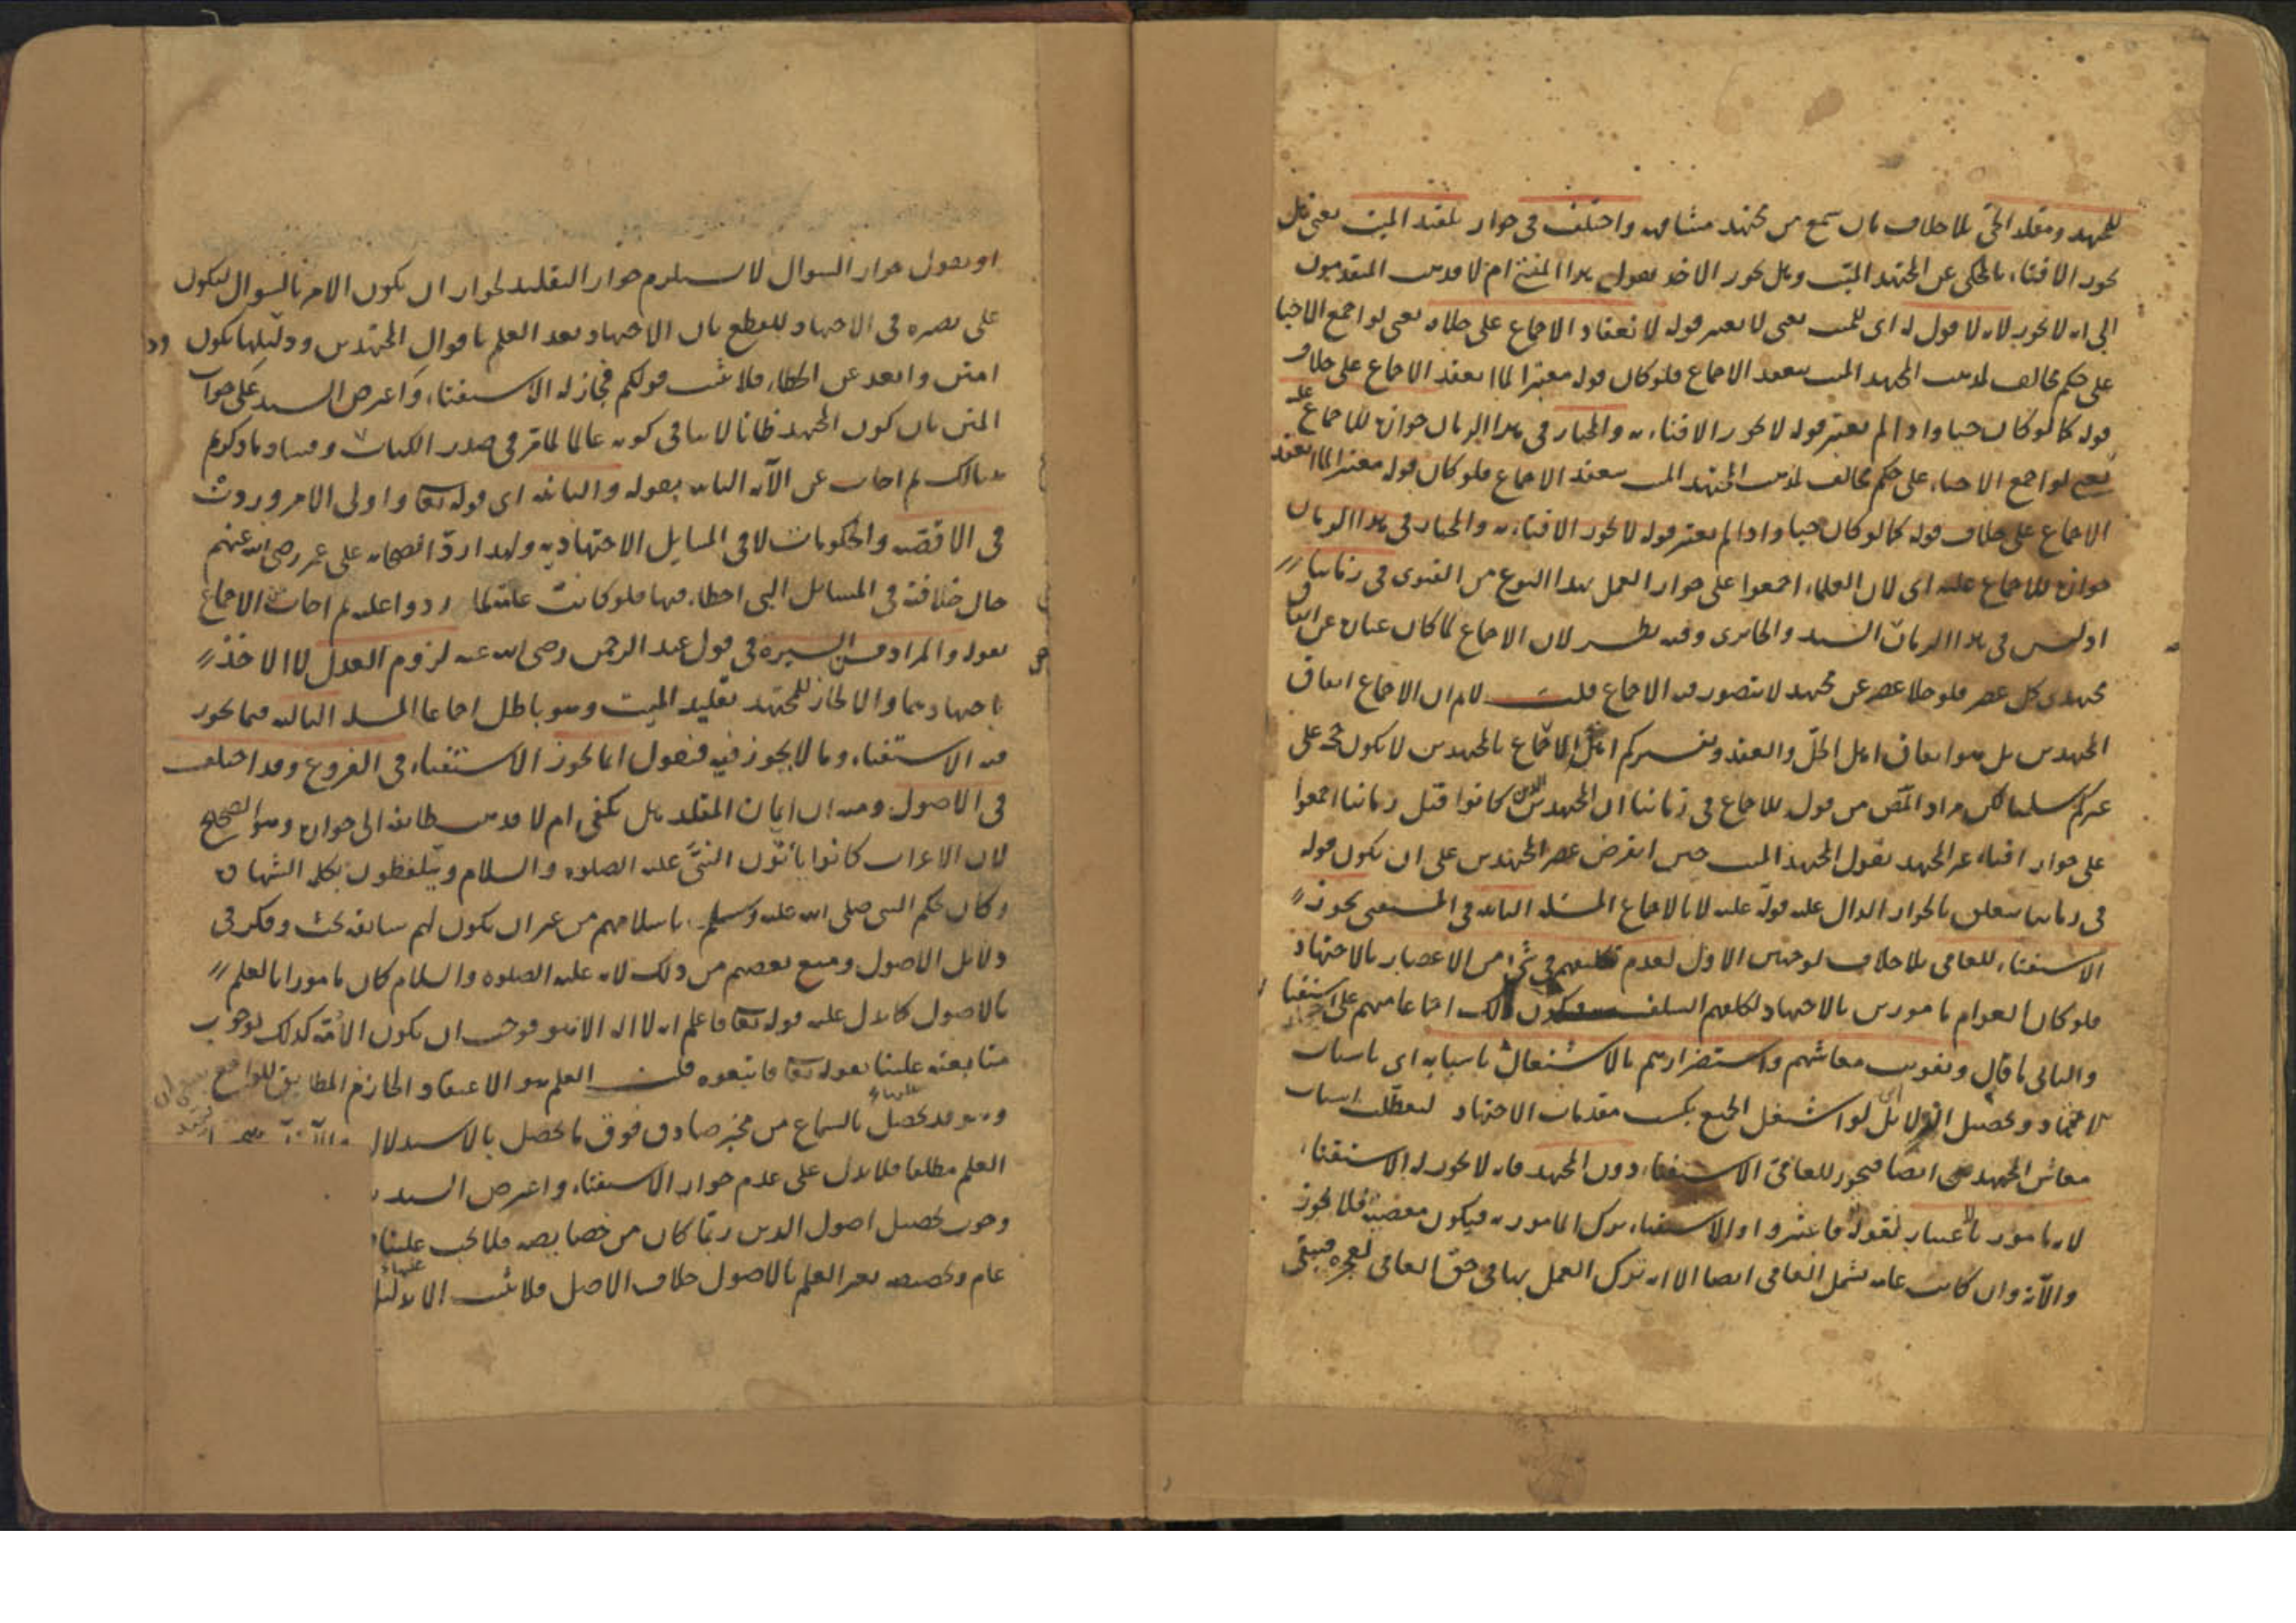 للمجتهد ومقلد الحي بلا خلاف بان سمع من مجتهد مشافهة واختلف في جواز تقليد الميت يعني هل
يجوز الافتاء بالمحكي عن المجتهد الميت وهل يجوز الاخذ بقول هذا المفتي ام لا فذهب المتقدمون
الى انه لا يجوز لانه لا قول له اي للميت يعني لا يعتبر قوله لانعقاد الاجماع على خلافه يعني لو اجمع الاحيا
على حكم مخالف لمذهب المجتهد الميت ينعقد الاجماع فلو كان قوله معتبرا لما انعقد الاجماع على خلاف
قوله كما لو كان حيا واذا لم يعتبر قوله لا يجوز الافتاء به والمختار في هذا الزمان جوازه للاجماع عليه
يعني لو اجمع الاحياء على حكم مخالف لمذهب المجتهد الميت ينعقد الاجماع فلو كان قوله معتبرا لما انعقد
الاجماع على خلاف قوله كما لو كان حيا واذا لم يعتبر قوله لا يجوز الافتاء به والمختار في هذا الزمان
جوازه للاجماع عليه اي لان العلماء اجمعوا على جواز العمل بهذا النوع من الفتوى في زماننا
اذ ليس في هذا الزمان السيد والجابردي وفيه نظر لان الاجماع لما كان عبارة عن اتفاق
مجتهدي كل عصر فلو خلا عصر عن مجتهد لا يتصور فيه الاجماع قلت لانم ان الاجماع اتفاق
المجتهدين بل هو اتفاق اهل الحل والعقد وتفسيركم اهل الاجماع بالمجتهدين لا يكون حجة على
غيركم سلمنا لكن مراد المص من قوله للاجماع في زماننا ان المجتهدين الذين كانوا قبل زماننا اجمعوا
على جواز افتاء غير المجتهد بقول المجتهد الميت حين انقرض عصر المجتهدين على ان يكون قوله
في زماننا متعلق بالجواز الدال عليه قوله عليه لا بالاجماع المسئلة الثانية في المستفتي يجوز
الاستفتاء للعامي بلا خلاف لوجهين الاول لعدم تكليفهم في شيء من الاعصار بالاجتهاد
فلو كان العوام مامورين بالاجتهاد لكلفهم السلف فيكون ذلك اجماعا منهم على استفتا
والثاني ما قال وتفويت معاشهم واستضرارهم بالاشتغال باسبابه اي باسباب
الاجتهاد وتحصيل الدلائل اي لو اشتغل الجميع بكسب مقدمات الاجتهاد لتعطلت اسباب
معاش المجتهدين ايضا فيجوز للعامي الاستفتاء دون المجتهد فانه لا يجوز له الاستفتاء
لانه مامور بالاعتبار لقوله فاعتبروا والاستفتاء ترك المامور به فيكون معصية فلا يجوز
والآية وان كانت عامة تشمل العامي ايضا الا انه ترك العمل بها في حق العامي لعجزه فيبقى
او يقول جواز السوال لا يستلزم جواز التقليد لجواز ان يكون الامر بالسوال ليكون
على بصيرة في الاجتهاد للقطع بان الاجتهاد بعد العلم باقوال المجتهدين ودليلها يكون
امتن وابعد عن الخطاء فلا يثبت قولكم فجاز له الاستفتاء واعترض السيد على جواب
المتن بان كون المجتهد ظانا لا ينافي كونه عالما لما مر في صدر الكتاب وفساد ما ذكرتم
هنالك ثم اجاب عن الآية الثانية بقوله والثانية اي قوله تعا واولي الامر وردت
في الاقضية والحكومات لا في المسايل الاجتهادية ولهذا رد الصحابة على عمر رضي الله عنهم
حال خلافته في المسائل التي اخطاء فيها فلو كانت عامة لما ردوا عليه ثم اجاب عن الاجماع
بقوله والمراد من السيرة في قول عبد الرحمن رضي الله عنه لزوم العدل لا الاخذ
باجتهادهما والا لجاز للمجتهد تقليد الميت وهو باطل اجماعا المسئلة الثالثة فيما يجوز
فيه الاستفتاء وما لا يجوز فيه فنقول انما يجوز الاستفتاء في الفروع وقد اختلف
في الاصول ومنه ان ايمان المقلد هل يكفي ام لا فذهب طائفة الى جوازه وهو الصحيح
لان الاعراب كانوا يأتون النبي عليه الصلوه والسلام ويتلفظون بكلمة الشهادة
وكان حكم النبي صلى الله عليه وسلم باسلامهم من غير ان يكون لهم سابقة بحث وفكر في
دلائل الاصول ومنع بعضهم من ذلك لانه عليه الصلوه والسلام كان مامورا بالعلم
بالاصول كما دل عليه قوله تعا فاعلم انه لا اله الا هو فوجب ان يكون الامة كذلك لوجوب
متابعته علينا بقوله تعا فاتبعوه قلت العلم هو الاعتقاد الجازم المطابق للواقع
وهو قد يحصل بالسماع من مخبر صادق فوق ما يحصل بالاستدلال
العلم مطلقا فلا يدل على عدم جواز الاستفتاء واعترض السيد
وجوب تحصيل اصول الدين ربما كان من خصايصه فلا يجب علينا
عام وتخصيصه بغير العلم بالاصول خلاف الاصل فلا يثبت الا بدليل